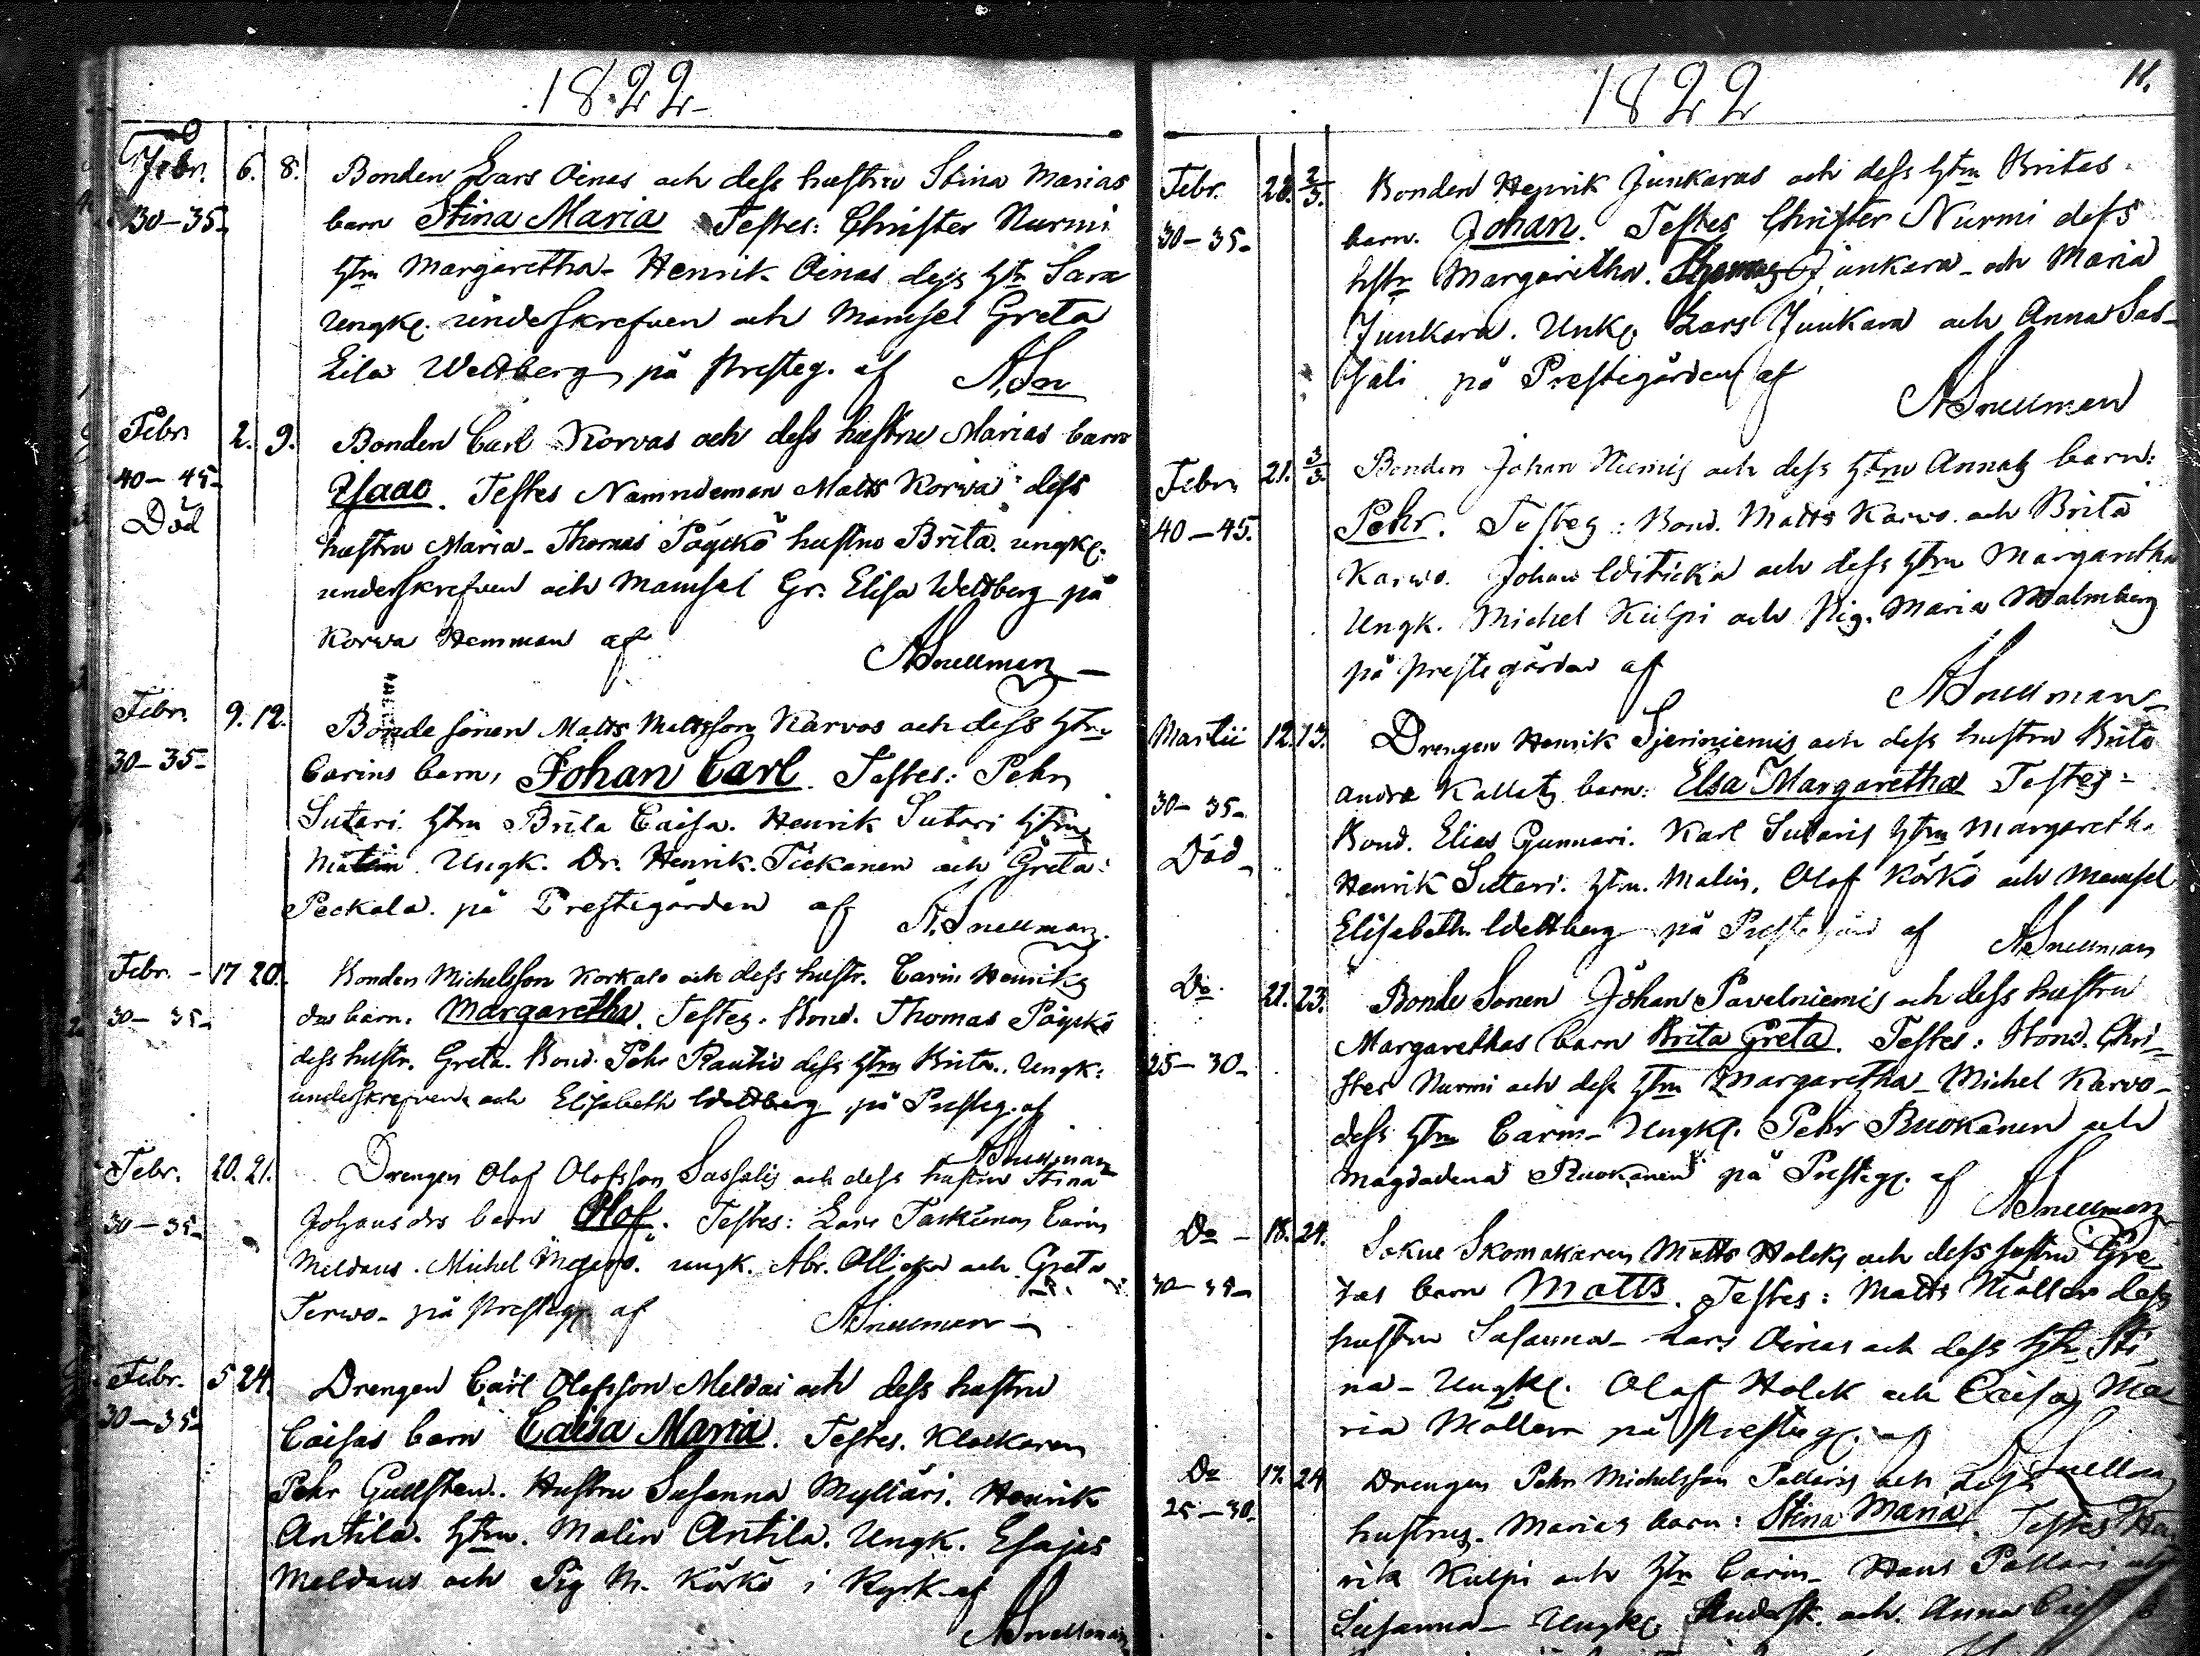 1822
Febr. 6. 8. Bonden Lars Oinas och dess hustru Stina Marias
30-35 barn Stina Maria Testes: Christer Nurmi
Hstru Margaretha - Henrik Oinas dess Hstr Sara
Ungk. underskrefven och Mamsel Greta
Lisa Weltberg på Presteg. af ASn
Febr. 2. 9. Bonden Carl Korvas och dess hustru Marias barn
40-45 Isaac. Testes Namndeman Matts Korva dess
Död
hustru Maria - Thomas Pöyckö hustru Brita. ungk.
underskrefven och Mamsel Gr. Elisa Weltberg på
Korva Hemman af
ASnellman
Febr. 9. 12. Bonde sonen Matts Mattsson Karvos och dess Hstru
30-35 Carins barn, Johan Carl. Testes: Pehr
Sutari Hstru Brita Caisa. Henrik Sutari Hstru
Malin. Ungk. Dr. Henrik Tickanen och Greta
Peckala. på Prestegården af A. Snellman.
Febr. - 17 20. Bonden Michelsson Korkalo och dess hustr. Carin Henriks
30-35 drs barn. Margaretha. Testes. Bond. Thomas Pöyckö
dess hustr. Greta. Bond. Pehr Rautio dess Hstru Brita. Ungk:
underskrefven och Elisabeth Weltberg på Presteg. af
ASnellman
Febr. 20. 21. Drengen Olof Olofsson Sassalis och dess hustru Stina
30-35 Johansdrs barn Olof. Testes: Lars Carin
Meldaus. Michel ungk. Abr. och Greta
Terwo - på Presteg. af ASnellman
Febr. 5 24. Drengen Carl Olofsson Meldai och dess hustru
30-35 Caisas barn Caisa Maria. Testes. Klockaren
Pehr Gullsten. Hustru Susanna Mylläri. Henrik
Antila. Hstru. Malin Antila. Ungk. Esajas
Meldaus och Pig M. Körkö i Kyrk. af
ASnellman
1822 11.
Febr. 28. 2/3. Bonden Henrik Junkaras och dess Hstru Britas
30-35 barn. Johan. Testes Christer Nurmi dess
hstr Margaretha. Thomas Junkara - och Maria
Junkara. Unk. Lars Junkara och Anna Sas-
sali på Prestegården af
ASnellman
Febr. 21. 3/3. Bonden Johan Niemis och dess Hstru Annas barn:
40-45. Pehr. Testes: Bond. Matts Karvo och Brita
Karvo. Johan och dess Hstru Margaretha
Ungk. Michel Kulpi och Pig. Maria Malmberg
på Prestegården af
ASnellman
Martii 12. 13. Drengen Henrik Sjeriniemis och dess hustru Brita
30-35 Andrs Kallas barn: Elsa Margaretha Testes:
Död
Bond. Elias Gunnari. Karl Sutaris Hstru Margareth.
Henrik Sutari. Hstru. Malin, Olof Körkö och Mamsel
Elisabeth Weltberg på Prestegård af ASnellman
Do. 21. 23. Bonde Sonen Johan Pavelniemis och dess hustru
25-30 Margarethas barn Brita Greta. Testes: Bond. Chri-
ster Nurmi och dess Hstru Margaretha - Michel Karvo -
dess Hstru Carin - Ungk. Pehr Ruokanen och
Magdalena Ruokanen på Presteg. af
ASnellman
Do - 18. 24. Sokne Skomakaren Matts Holcks och dess hustru Gre-
30-35 tas barn Matts. Testes: Matts Möller dess
hustru Susanna - Lars Oinas och dess Hstr Sti-
na - Ungk. Olof Holck och Caisa Ma-
ria Möller på Presteg. af
ASnellman
Do 17. 24 Drengen Pehr Michelsson Palleris och dess
25-30. hustrus Marias barn: Stina Maria. Testes Hen-
rik Kulpi och Hstr Carin - Hans Pallari och
Susanna - Ungk. Underst. och Anna